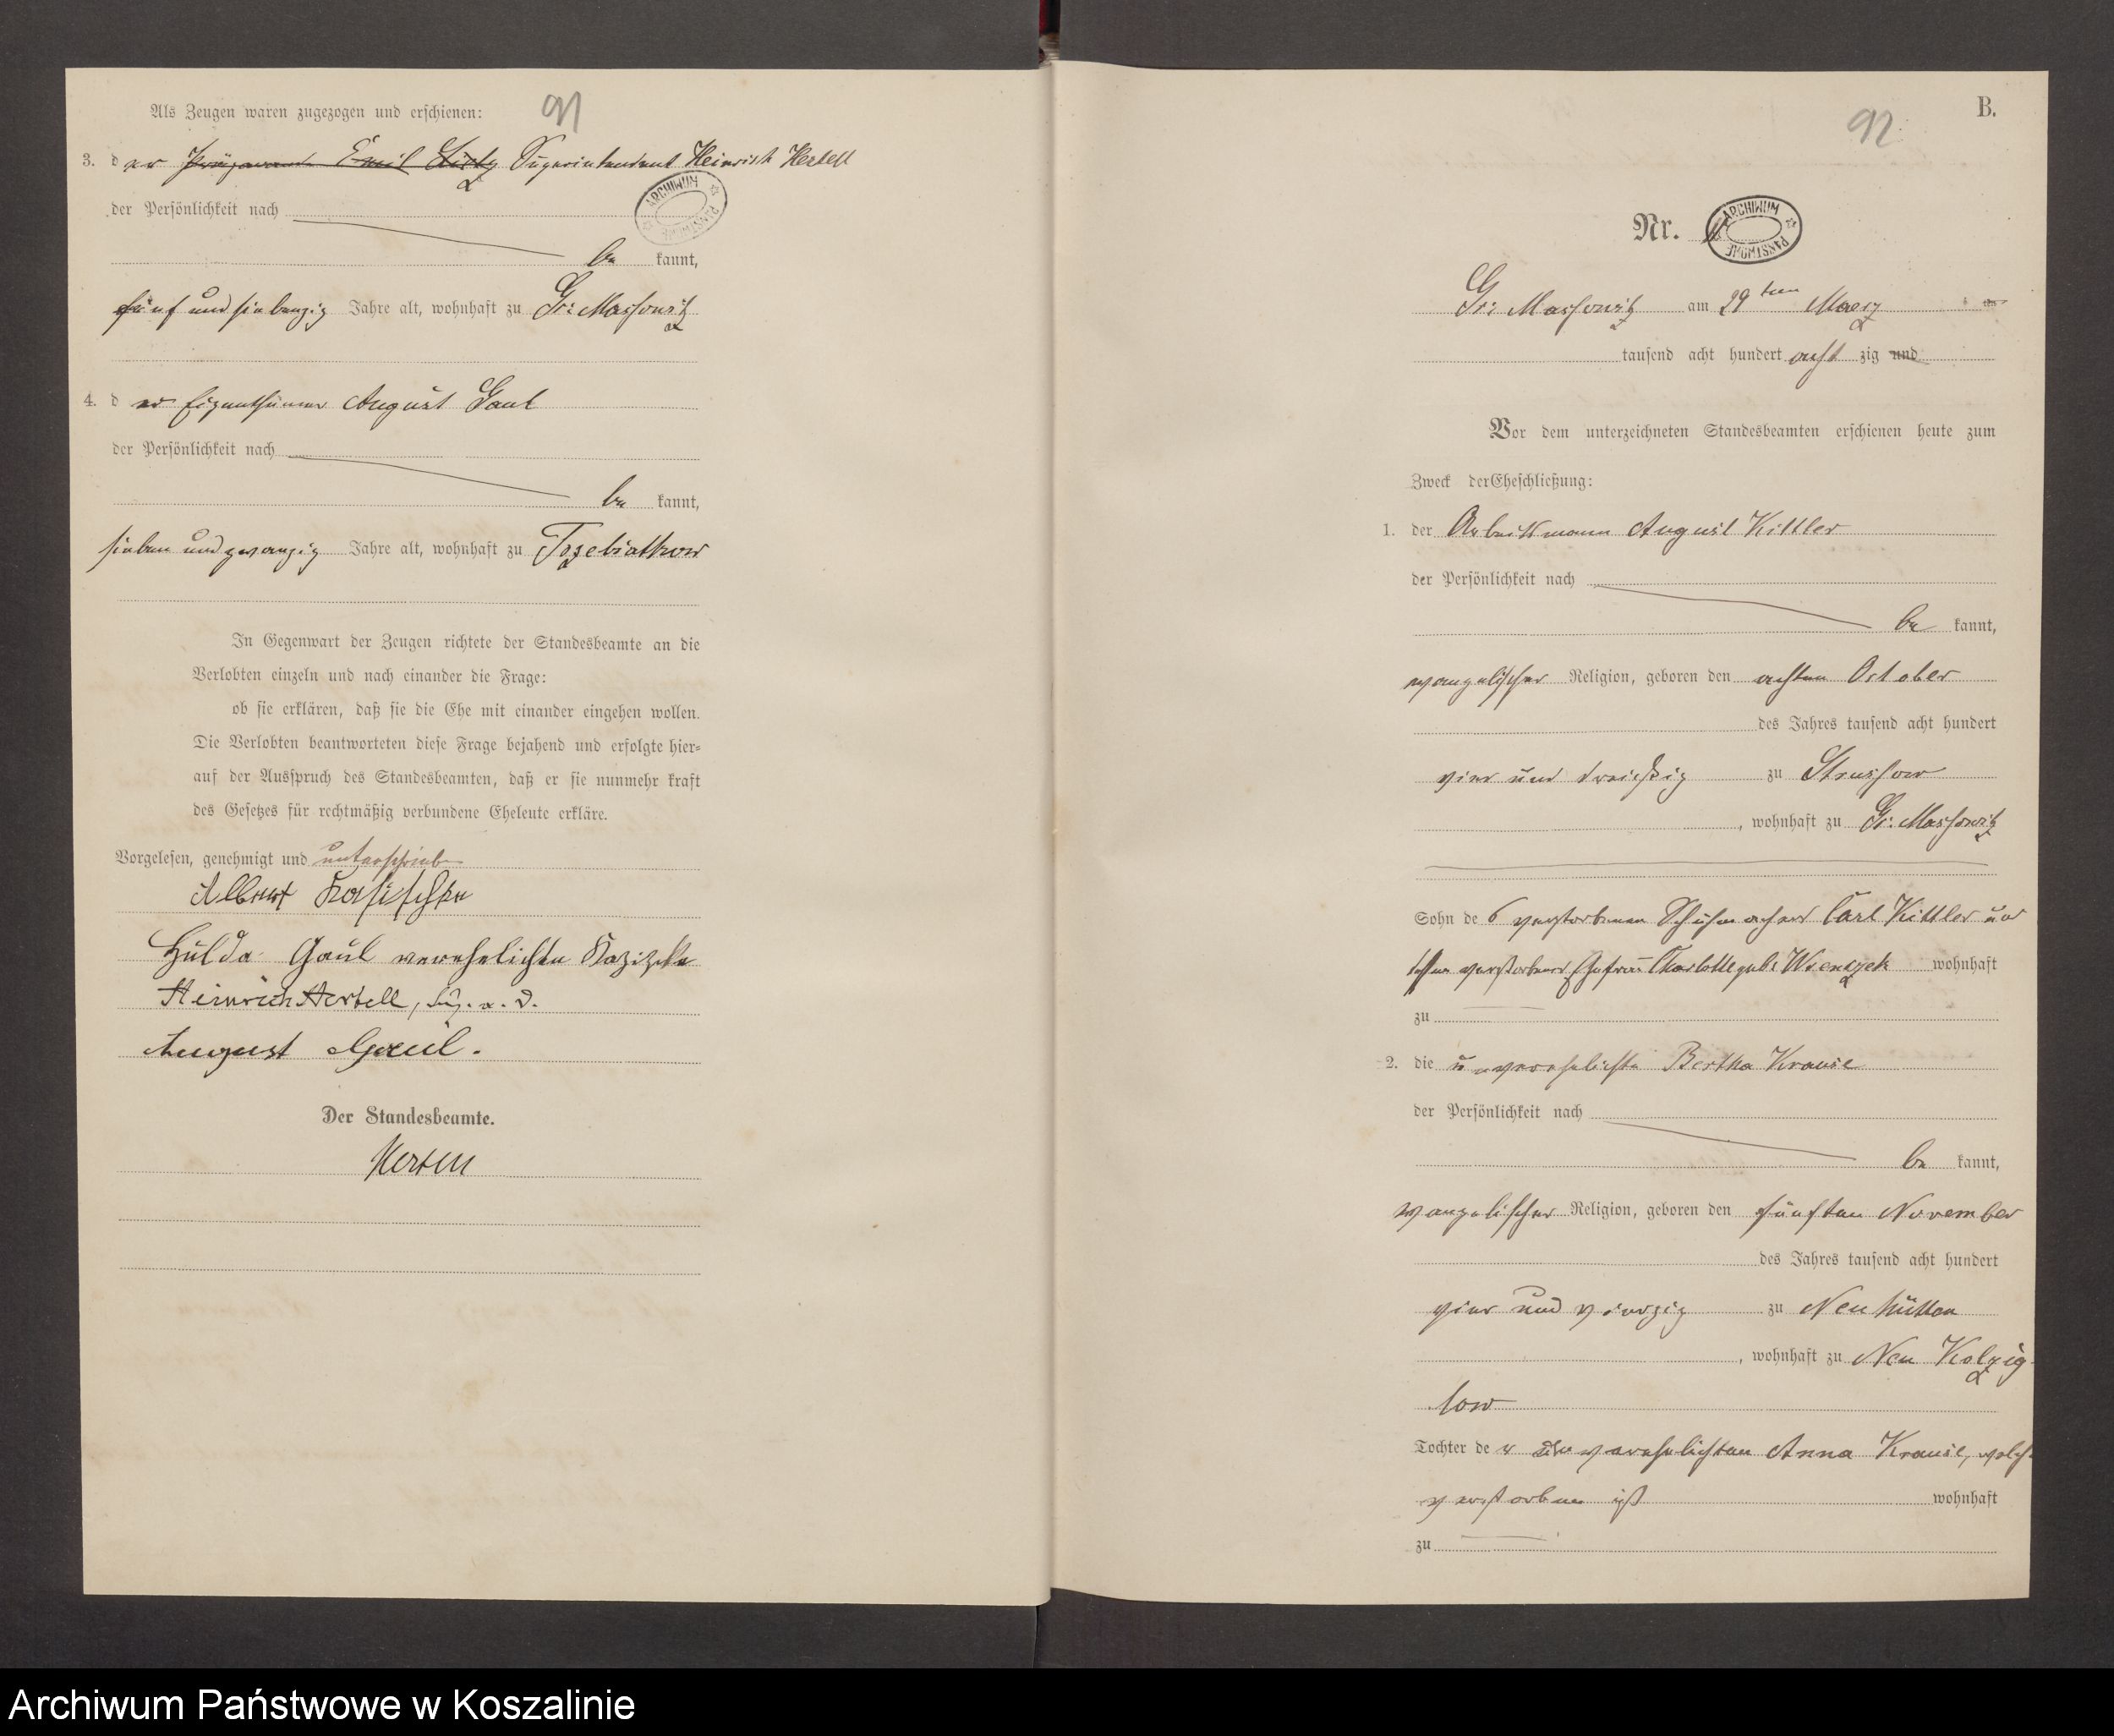 91
Als Zeugen waren zugezogen und erschienen:
3. der Emil Superintendent Heinrich Hertell
ARCHIWUM PAŃSTWOWE
der Persönlichkeit nach
be kannt,
fünf und siebenzig Jahre alt, wohnhaft zu Gr: Massowitz
4. d er Eigenthümer August Gaul
der Persönlichkeit nach
be kannt,
sieben und zwanzig Jahre alt, wohnhaft zu Trzebiatkow
In Gegenwart der Zeugen richtete der Standesbeamte an die
Verlobten einzeln und nach einander die Frage:
ob sie erklären, daß sie die Ehe mit einander eingehen wollen.
Die Verlobten beantworteten diese Frage bejahend und erfolgte hier-
auf der Ausspruch des Standesbeamten, daß er sie nunmehr kraft
des Gesetzes für rechtmäßig verbundene Eheleute erkläre.
Vorgelesen, genehmigt und unterschrieben
Albert
Hulda Gaul verehelichte
Heinrich Hertell, Sup. a. D.
August Gaul.
Der Standesbeamte.
B.
92
Nr.
ARCHIWUM PAŃSTWOWE
Gr: Massowitz am 29ten Maerz
tausend acht hundert acht zig und
Vor dem unterzeichneten Standesbeamten erschienen heute zum
Zweck der Eheschließung:
1. der Arbeitsmann August Kittler
der Persönlichkeit nach
be kannt,
evangelischer Religion, geboren den achten October
des Jahres tausend acht hundert
vier und dreißig zu Strussow
, wohnhaft zu Gr: Massowitz
Sohn des verstorbenen Schuhmacher Carl Kittler und
dessen verstorbener Ehefrau Charlotte geb: wohnhaft
zu
2. die unverehelichte Bertha Krause
der Persönlichkeit nach
be kannt,
evangelischer Religion, geboren den fünften November
des Jahres tausend acht hundert
vier und vierzig zu Neuhütten
, wohnhaft zu Neu Kolzig-
low
Tochter der unverehelichten Anna Krause, welche
verstorben ist wohnhaft
zu
Archiwum Państwowe w Koszalinie